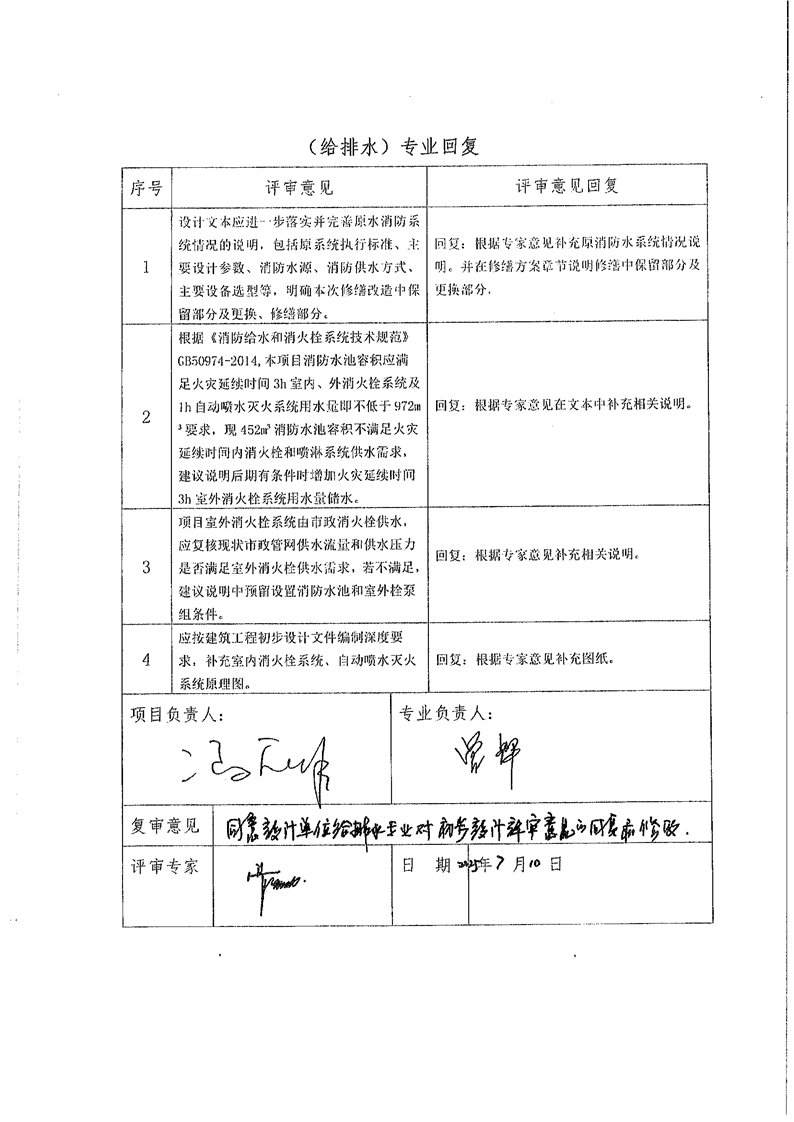 （给排水）专业回复
序号
评审意见
评审意见回复
1
设计文本应进一步落实并完善原水消防系
统情况的说明，包括原系统执行标准、主
要设计参数、消防水源、消防供水方式、
主要设备选型等，明确本次修缮改造中保
留部分及更换、修缮部分。
回复：根据专家意见补充原消防水系统情况说
明。并在修缮方案章节说明修缮中保留部分及
更换部分.
2
根据《消防给水和消火栓系统技术规范》
GB50974-2014,本项目消防水池容积应满
足火灾延续时间 3h 室内、外消火栓系统及
1h 自动喷水灭火系统用水量即不低于 972m
³ 要求，现 452m³ 消防水池容积不满足火灾
延续时间内消火栓和喷淋系统供水需求，
建议说明后期有条件时增加火灾延续时间
3h 室外消火栓系统用水量储水。
回复：根据专家意见在文本中补充相关说明。
3
项目室外消火栓系统由市政消火栓供水，
应复核现状市政管网供水流量和供水压力
是否满足室外消火栓供水需求，若不满足，
建议说明中预留设置消防水池和室外栓泵
组条件。
回复：根据专家意见补充相关说明。
4
应按建筑工程初步设计文件编制深度要
求，补充室内消火栓系统、自动喷水灭火
系统原理图。
回复：根据专家意见补充图纸。
项目负责人：
专业负责人：
复审意见
同意设计单位给排水专业对初步设计评审意见的回复和修改.
评审专家
日 期 2025年 7 月 10 日